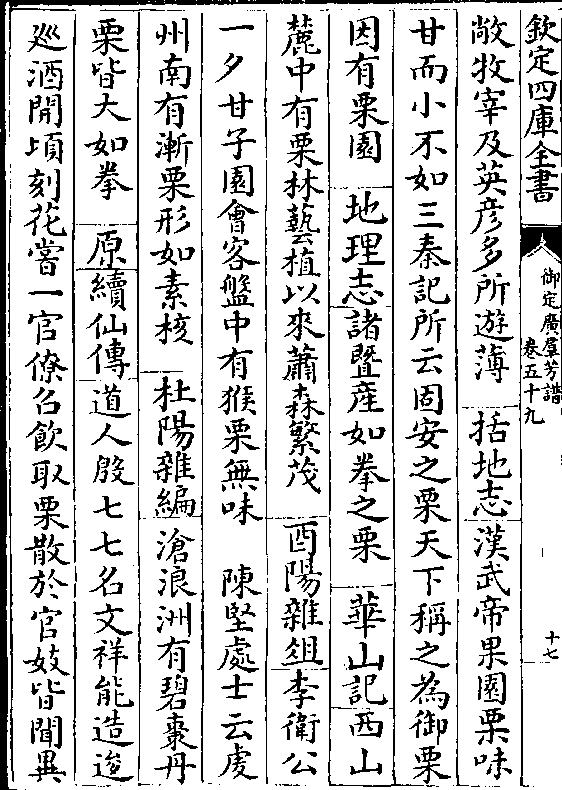 欽定四庫全書
御定廣羣芳譜
卷五十九
十七
敞牧宰及英彦多所遊薄 括地志漢武帝果園栗味
甘而小不如三秦記所云固安之栗天下稱之為御栗
因有栗園 地理志諸暨産如拳之栗 華山記西山
麓中有栗林藝植以來蕭森繁茂 酉陽雜俎李衛公
一夕甘子園會客盤中有猴栗無味 陳堅處士云虔
州南有漸栗形如素核 杜陽雜編滄浪洲有碧棗丹
栗皆大如拳 原續仙傳道人殷七七名文祥能造逡
廵酒開頃刻花嘗一官僚召飲取栗散於官妓皆聞異